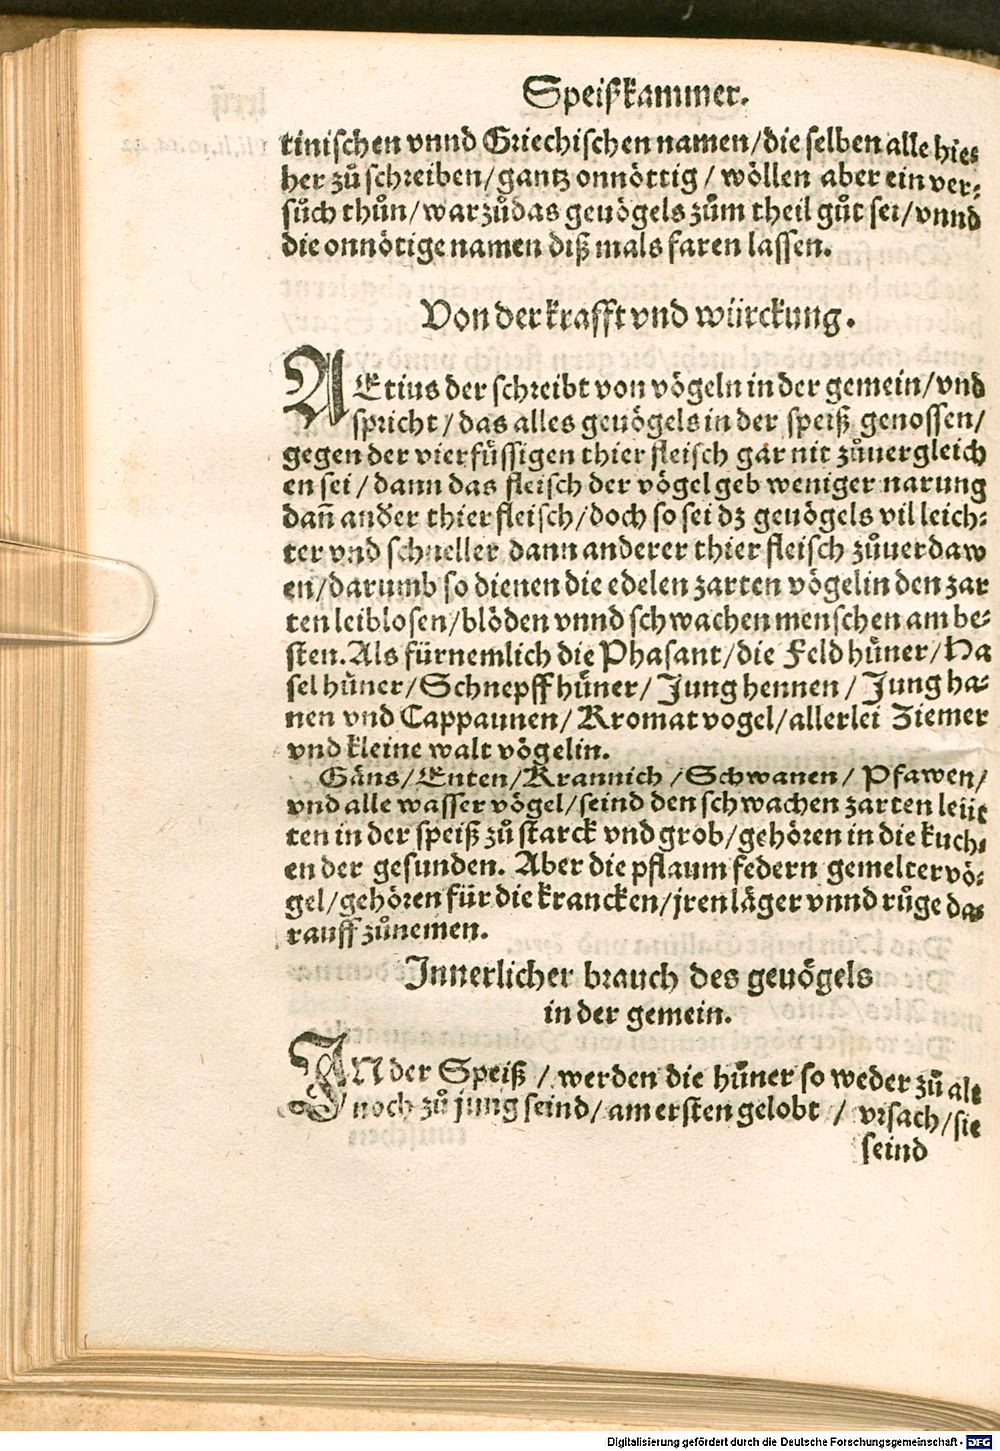 Speißkammer.
tinischen vnnd Griechischen namen/die selben alle hie-
her zů schreiben/gantz onnöttig/ wöllen aber ein ver-
sůch thůn/warzů das geuögels zům theil gůt sei/vnnd
die onnötige namen diß mals faren lassen.
Von der krafft vnd würckung.
AEtius der schreibt von vögeln in der gemein/vnd
spricht/das alles geuögels in der speiß genossen/
gegen der vierfüssigen thier fleisch gar nit zůuergleich
en sei/dann das fleisch der vögel geb weniger narung
dañ ander thier fleisch/doch so sei dz geuögels vil leich-
ter vnd schneller dann anderer thier fleisch zůuerdaw
en/darumb so dienen die edelen zarten vögelin den zar
ten leiblosen/blöden vnnd schwachen menschen am be-
sten. Als fürnemlich die Phasant/die Feldhüner/Ha
selhüner/Schnepffhüner/Jung hennen/Jung ha-
nen vnd Cappaunen/Kromatvogel/allerlei Ziemer
vnd kleine walt vögelin.
Gäns/Enten/Krannich/Schwanen/Pfawen/
vnd alle wasser vögel/seind den schwachen zarten leüt
ten in der speiß zů starck vnd grob/gehören in die kuch-
en der gesunden. Aber die pflaumfedern gemelter vö-
gel/gehören für die krancken/jren läger vnnd růge da-
rauff zůnemen.
Innerlicher brauch des geuögels
in der gemein.
IN der Speiß/werden die hüner so weder zů alt
noch zů jung seind/am ersten gelobt/vrsach/sie
seind
Digitalisierung gefördert durch die Deutsche Forschungsgemeinschaft - DFG